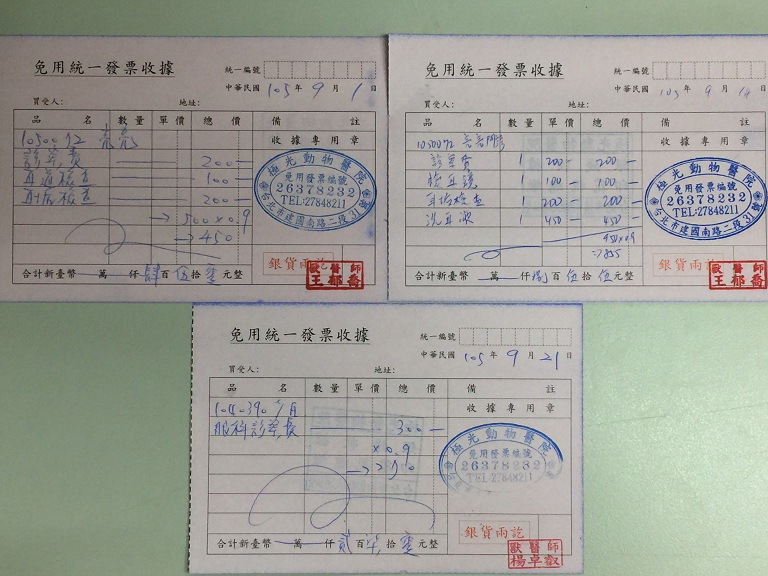 免用統一發票收據
統一編號
中華民國 105 年 9 月 1 日
買受人: 地址:
品名 數量 單價 總價 備註
收據專用章
1050072 亮亮
診察費 200
直道檢查 100
耳病檢查 200
→ 500×0.9
→ 450
極光動物醫院
免用發票編號
26378232
TEL:27848211
台北市建國南路二段31號
合計新臺幣 萬 仟 肆 百 伍 拾 零 元整
銀貨兩訖
獸醫師
王郁喬
免用統一發票收據
統一編號
中華民國 105 年 9 月 14 日
買受人: 地址:
品名 數量 單價 總價 備註
收據專用章
1050072 亮亮
診察費 1 200 200
檢耳鏡 1 100 100
耳垢檢查 1 200 200
洗耳液 1 450 450
950×0.9
→855
極光動物醫院
免用發票編號
26378232
TEL:27848211
台北市建國南路二段31號
合計新臺幣 萬 仟 捌 百 伍 拾 伍 元整
銀貨兩訖
獸醫師
王郁喬
免用統一發票收據
統一編號
中華民國 105 年 9 月 21 日
買受人: 地址:
品名 數量 單價 總價 備註
收據專用章
1040390
眼科診察費 300
×0.9
→270
極光動物醫院
免用發票編號
26378232
TEL:27848211
合計新臺幣 萬 仟 貳 百 柒 拾 零 元整
銀貨兩訖
獸醫師
楊卓叡